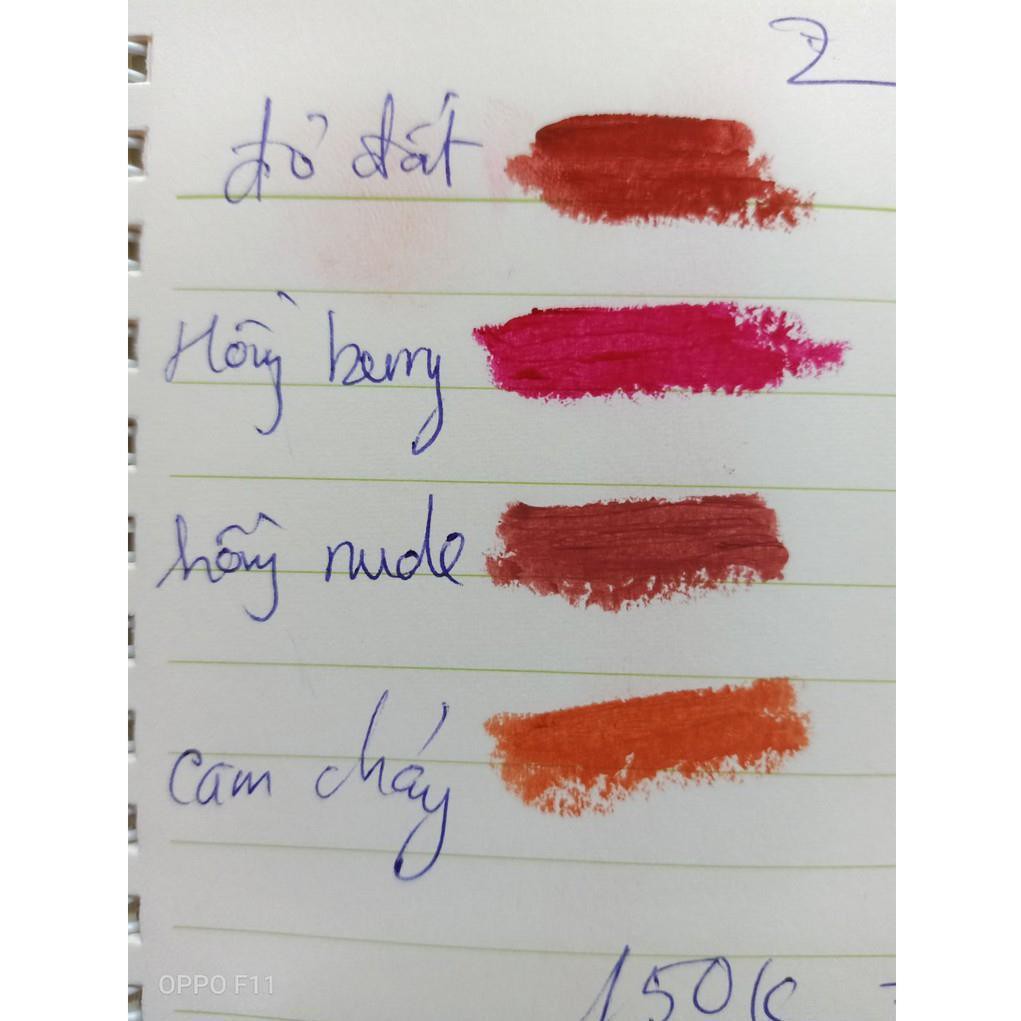 2
đỏ đất
Hồng berry
hồng nude
cam cháy
150k
OPPO F11